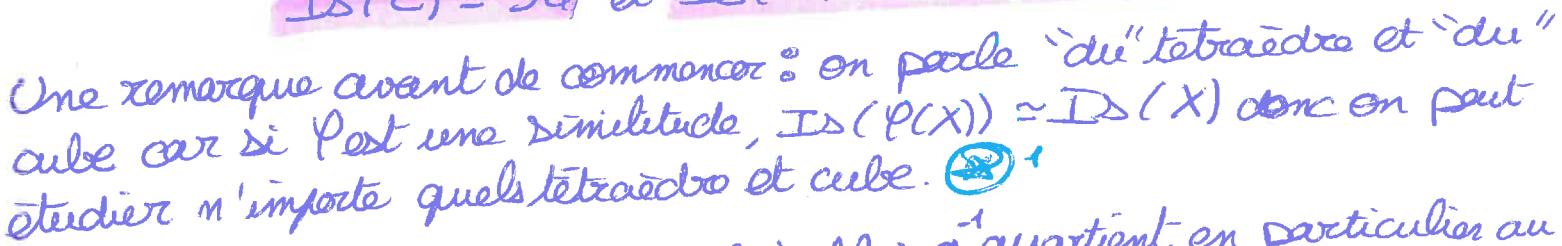 Une remarque avant de commencer : on parle "du" tétraèdre et "du"
cube car si φ est une similitude, Is(φ(X)) ≃ Is(X) donc on peut
étudier n'importe quels tétraèdre et cube. 1
en particulier au